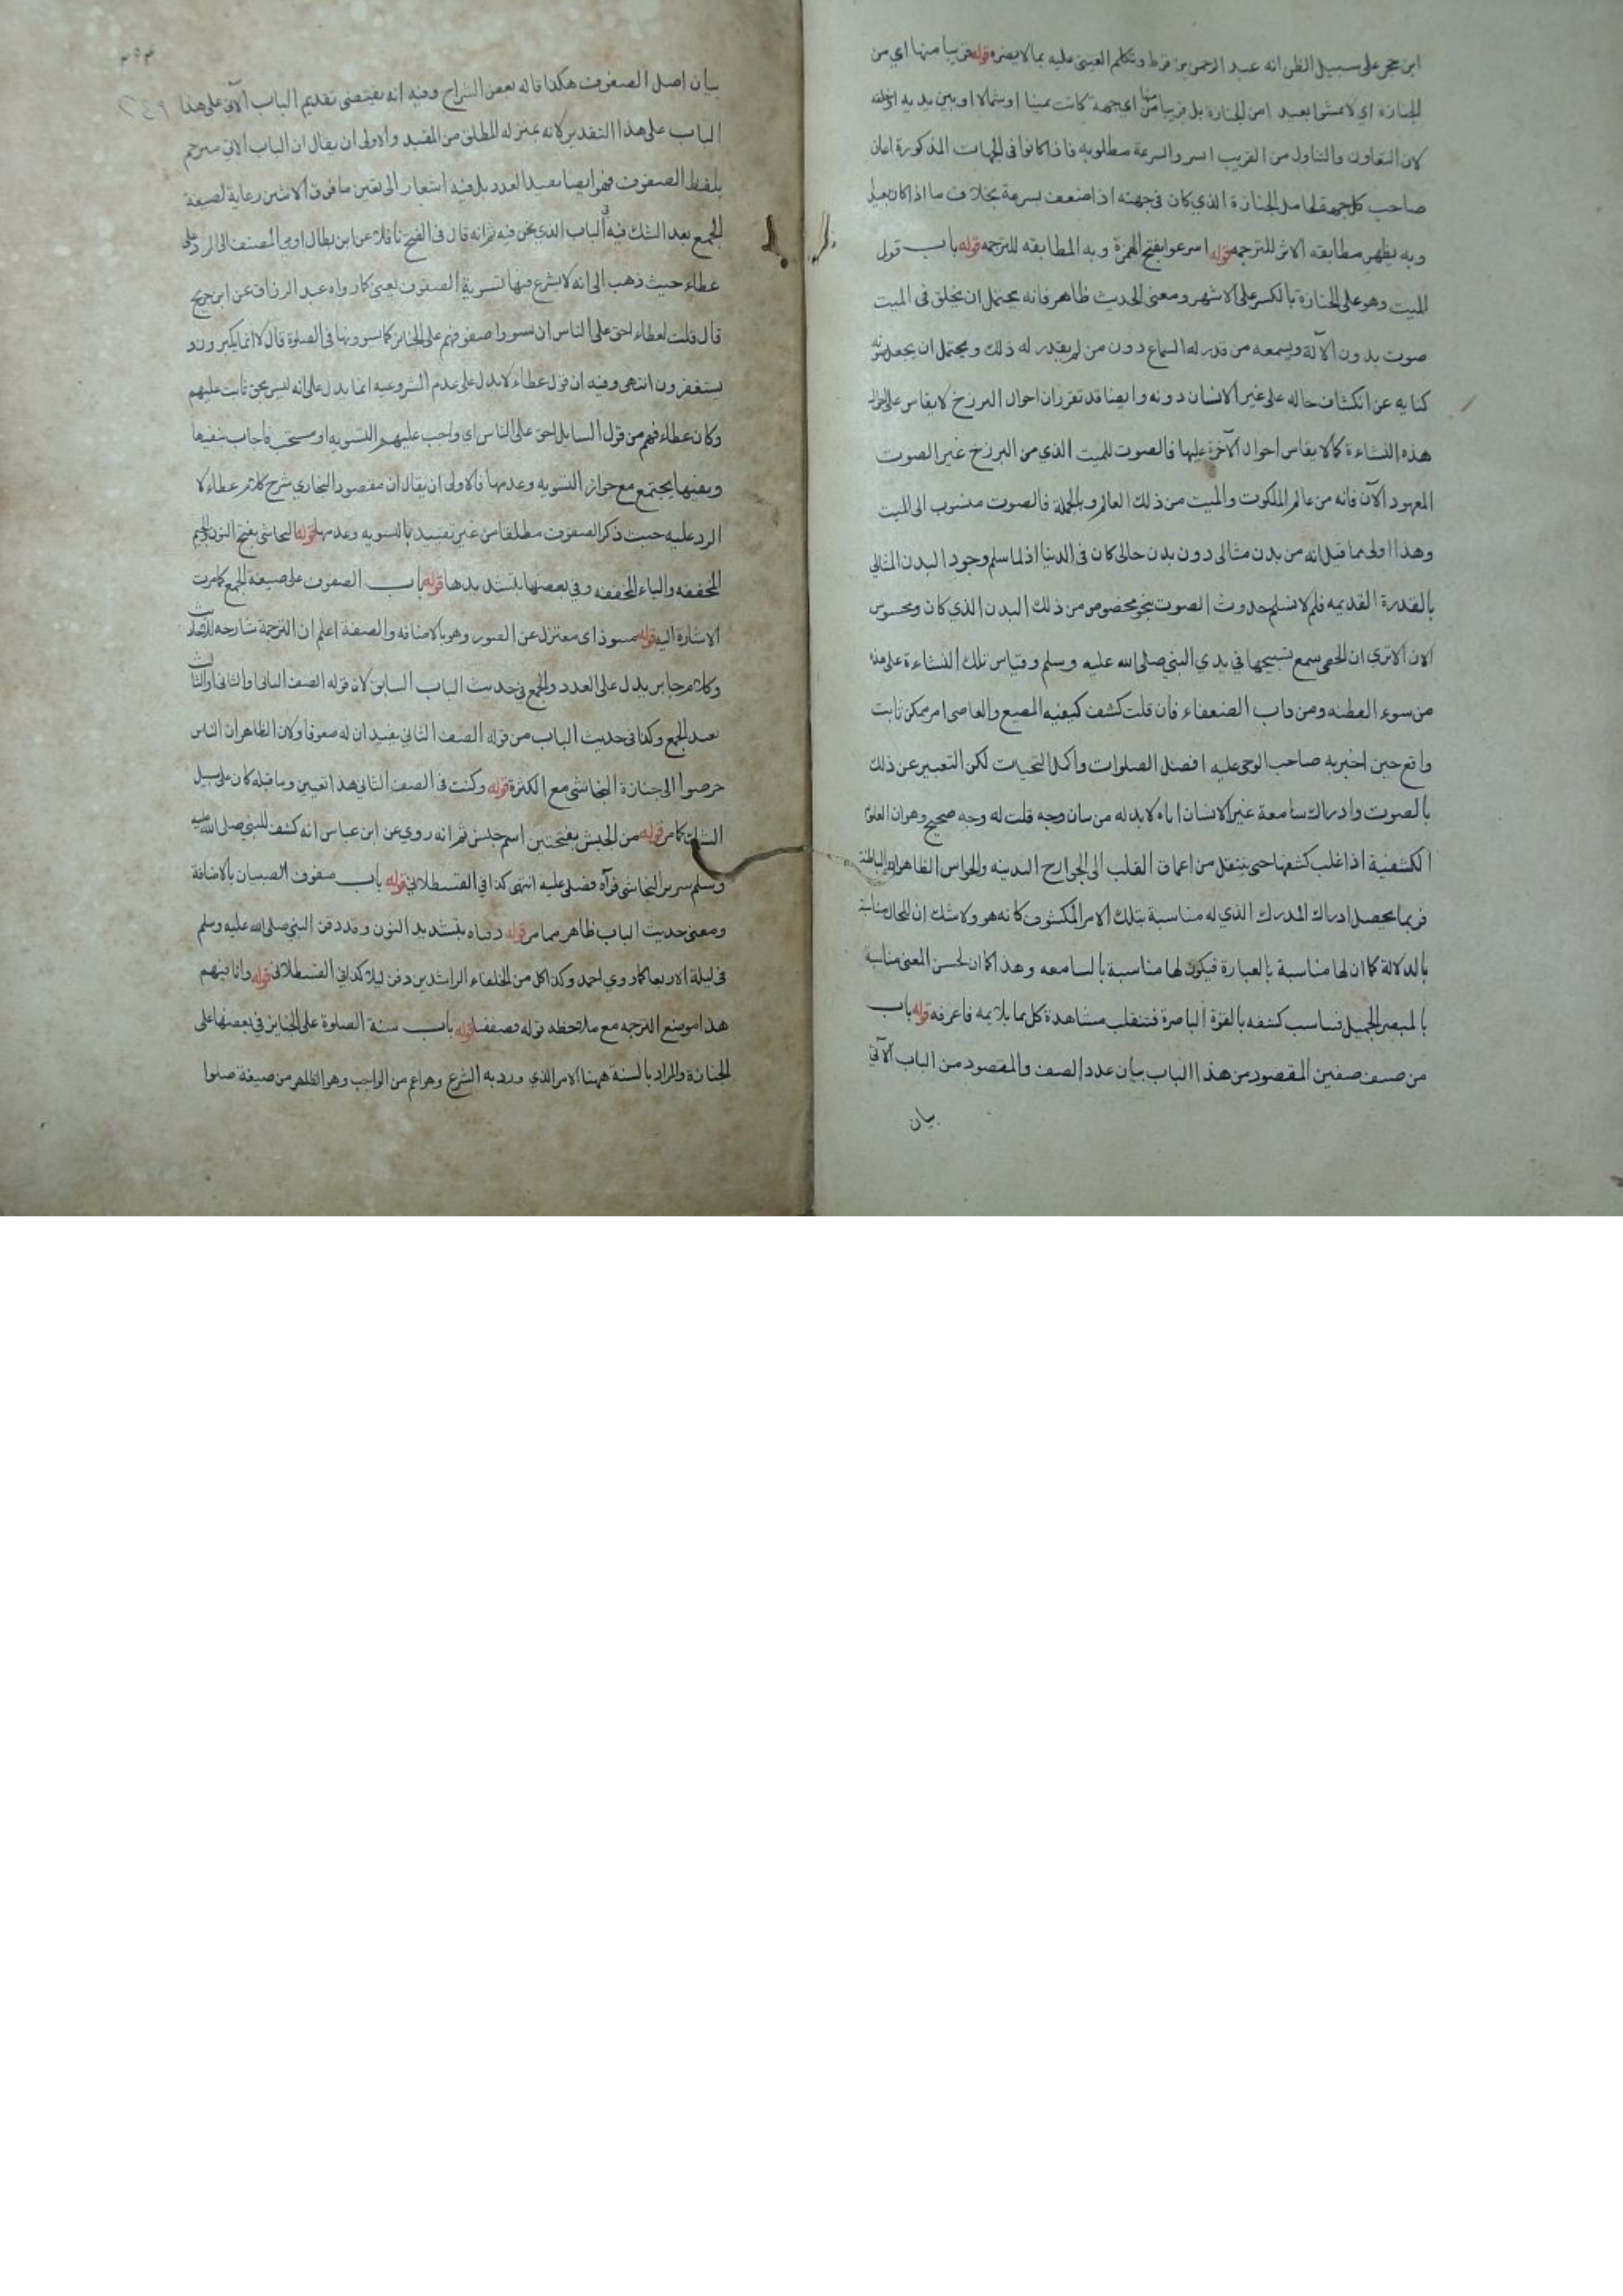 ابن حجر على سبيل الظن انه عبد الرحمن بن قرط وتكلم العيني عليه بما لا يضره قوله قريبا منها اي من
الجنازة اي لا تمشوا بعيدا من الجنازة بل قريبا منها من اي جهة كانت يمينا او شمالا او بين يديه او خلفه
لان التعاون والتناول من القريب ايسر والسرعة مطلوبه فاذا كانوا في الجهات المذكورة اعان
صاحب كل جهة لحامل الجنازة الذي كان في جهته اذا ضعف بسرعة بخلاف ما اذا كان بعيدا
وبه يظهر مطابقه الاثر للترجمه قوله اسرعوا بفتح الهمزة وبه المطابقه للترجمه قوله باب قول
الميت وهو على الجنازة بالكسر على الاشهر ومعنى الحديث ظاهر فانه يحتمل ان يخلق في الميت
صوت بدون الآلة ويسمعه من قدر له السماع دون من لم يقدر له ذلك ويحتمل ان يجعل صوته
كنايه عن انكشاف حاله على غير الانسان دونه وايضا قد تقرر ان احوال البرزخ لا يقاس على احوال
هذه النشاءة كما لا يقاس احوال الآخرة عليها فالصوت للميت الذي من البرزخ غير الصوت
المعهود الآن فانه من عالم الملكوت والميت من ذلك العالم وبالجملة فالصوت منسوب الى الميت
وهذا اولى مما قيل انه من بدن مثالى دون بدن حالى كان في الدنيا اذ لما سلم وجود البدن المثالي
بالقدرة القديمه فلم لا نسلم حدوث الصوت بنحو مخصوص من ذلك البدن الذي كان ومحسوس
الان الا تري ان الحصى سمع تسبيحها في يدي النبي صلى الله عليه وسلم وقياس تلك النشاءة على هذه
من سوء الفطنه ومن داب الضعفاء فان قلت كشف كيفيه المطيع والعاصي امر ممكن ثابت
واقع حين اخبر به صاحب الوحي عليه افضل الصلوات واكمل التحيات لكن التعبير عن ذلك
بالصوت وادراك سامعة غير الانسان اياه لا بد له من بيان وجه قلت له وجه صحيح وهو ان العلوم
الكشفية اذا غلب كشفها حتى ينتقل من اعماق القلب الى الجوارح البدنيه والحواس الظاهرة والباطنة
فربما يحصل ادراك المدرك الذي له مناسبة بتلك الامر المكشوف كانه هو ولا شك ان للحال مناسبة
بالدلالة كما ان لها مناسبة بالعبارة فيكون لها مناسبة بالسامعه وهذا كما ان لحسن المعنى مناسبة
بالمبصر الجميل فناسب كشفه بالقوة الباصرة فتنقلب مشاهدة كل بما يلايمه فاعرفه قوله باب
من صف صفين المقصود من هذا الباب بيان عدد الصف والمقصود من الباب الآتي
بيان
٢٤٩
بيان اصل الصفوف هكذا قاله بعض الشراح وفيه انه يقتضى تقديم الباب الآتى على هذا
الباب على هذا التقدير لانه بمنزله المطلق من المقيد والاولى ان يقال ان الباب الاتي مترجم
بلفظ الصفوف فهو ايضا يفيد العدد بل فيه اشعار الى تعين ما فوق الاثنين رعاية لصيغة
الجمع بعد الشك فيه في الباب الذي نحن فيه ثم انه قال في الفتح ناقلا عن ابن بطال اومي المصنف الى الرد على
عطاء حيث ذهب الى انه لا يشرع فيها تسوية الصفوف يعنى كما رواه عبد الرزاق عن ابن جريج
قال قلت لعطاء احق على الناس ان يسووا صفوفهم على الجنائز كما يسوونها في الصلوة قال لا انما يكبرون و
يستغفرون انتهى وفيه ان قول عطاء لا يدل على عدم الشروعيه انما يدل على انه ليس بحق ثابت عليهم
وكان عطاء فهم من قول السايل احق على الناس اي واجب عليهم التسويه او مستحب فاجاب بنفيها
وبفيها يجتمع مع جواز التسويه وعدمها فالاولى ان يقال ان مقصود البخاري شرح كلام عطاء لا
الرد عليه حيث ذكر الصفوف مطلقا من غير تقييد بالتسويه وعدمها قوله النجاشي بفتح النون والجيم
المخففه والياء المخففه وفي بعضها بتشديدها قوله باب الصفوف على صيغة الجمع كما مرت
الاشارة اليه قوله منبوذ اى معتزل عن القبور وهو بالاضافه والصفة اعلم ان الترجمة شارحه للاحاديث
وكلام جابر يدل على العدد والجمع في حديث الباب السابق لان قوله الصف الثاني والثاني او الثالث
بعد الجمع وكذا في حديث الباب من قوله الصف الثاني يفيد ان له صفوفا ولان الظاهر ان الناس
حرصوا الى جنازة النجاشي مع الكثرة قوله وكنت في الصف الثاني هذا تعيين وما قبله كان على سبيل
الشك كما مر قوله من الحبش بفتحتين اسم جنس ثم انه روي عن ابن عباس انه كشف للنبي صلى الله عليه
وسلم سرير النجاشي فرآه فصلى عليه انتهى كذا في القسطلاني قوله باب صفوف الصبيان بالاضافة
ومعنى حديث الباب ظاهر مما مر قوله دفناه بتشديد النون وقد دفن النبي صلى الله عليه وسلم
في ليلة الاربعا كما روي احمد وكذا كل من الخلفاء الراشدين دفن ليلا كذا في القسطلاني قوله وانا فيهم
هذا موضع الترجمه مع ملاحظه قوله فصففنا قوله باب سنة الصلوة على الجنايز في بعضها على
الجنازة والمراد بالسنة ههنا الامر الذي ورد به الشرع وهو اعم من الواجب وهو الظاهر من صيغة صلوا